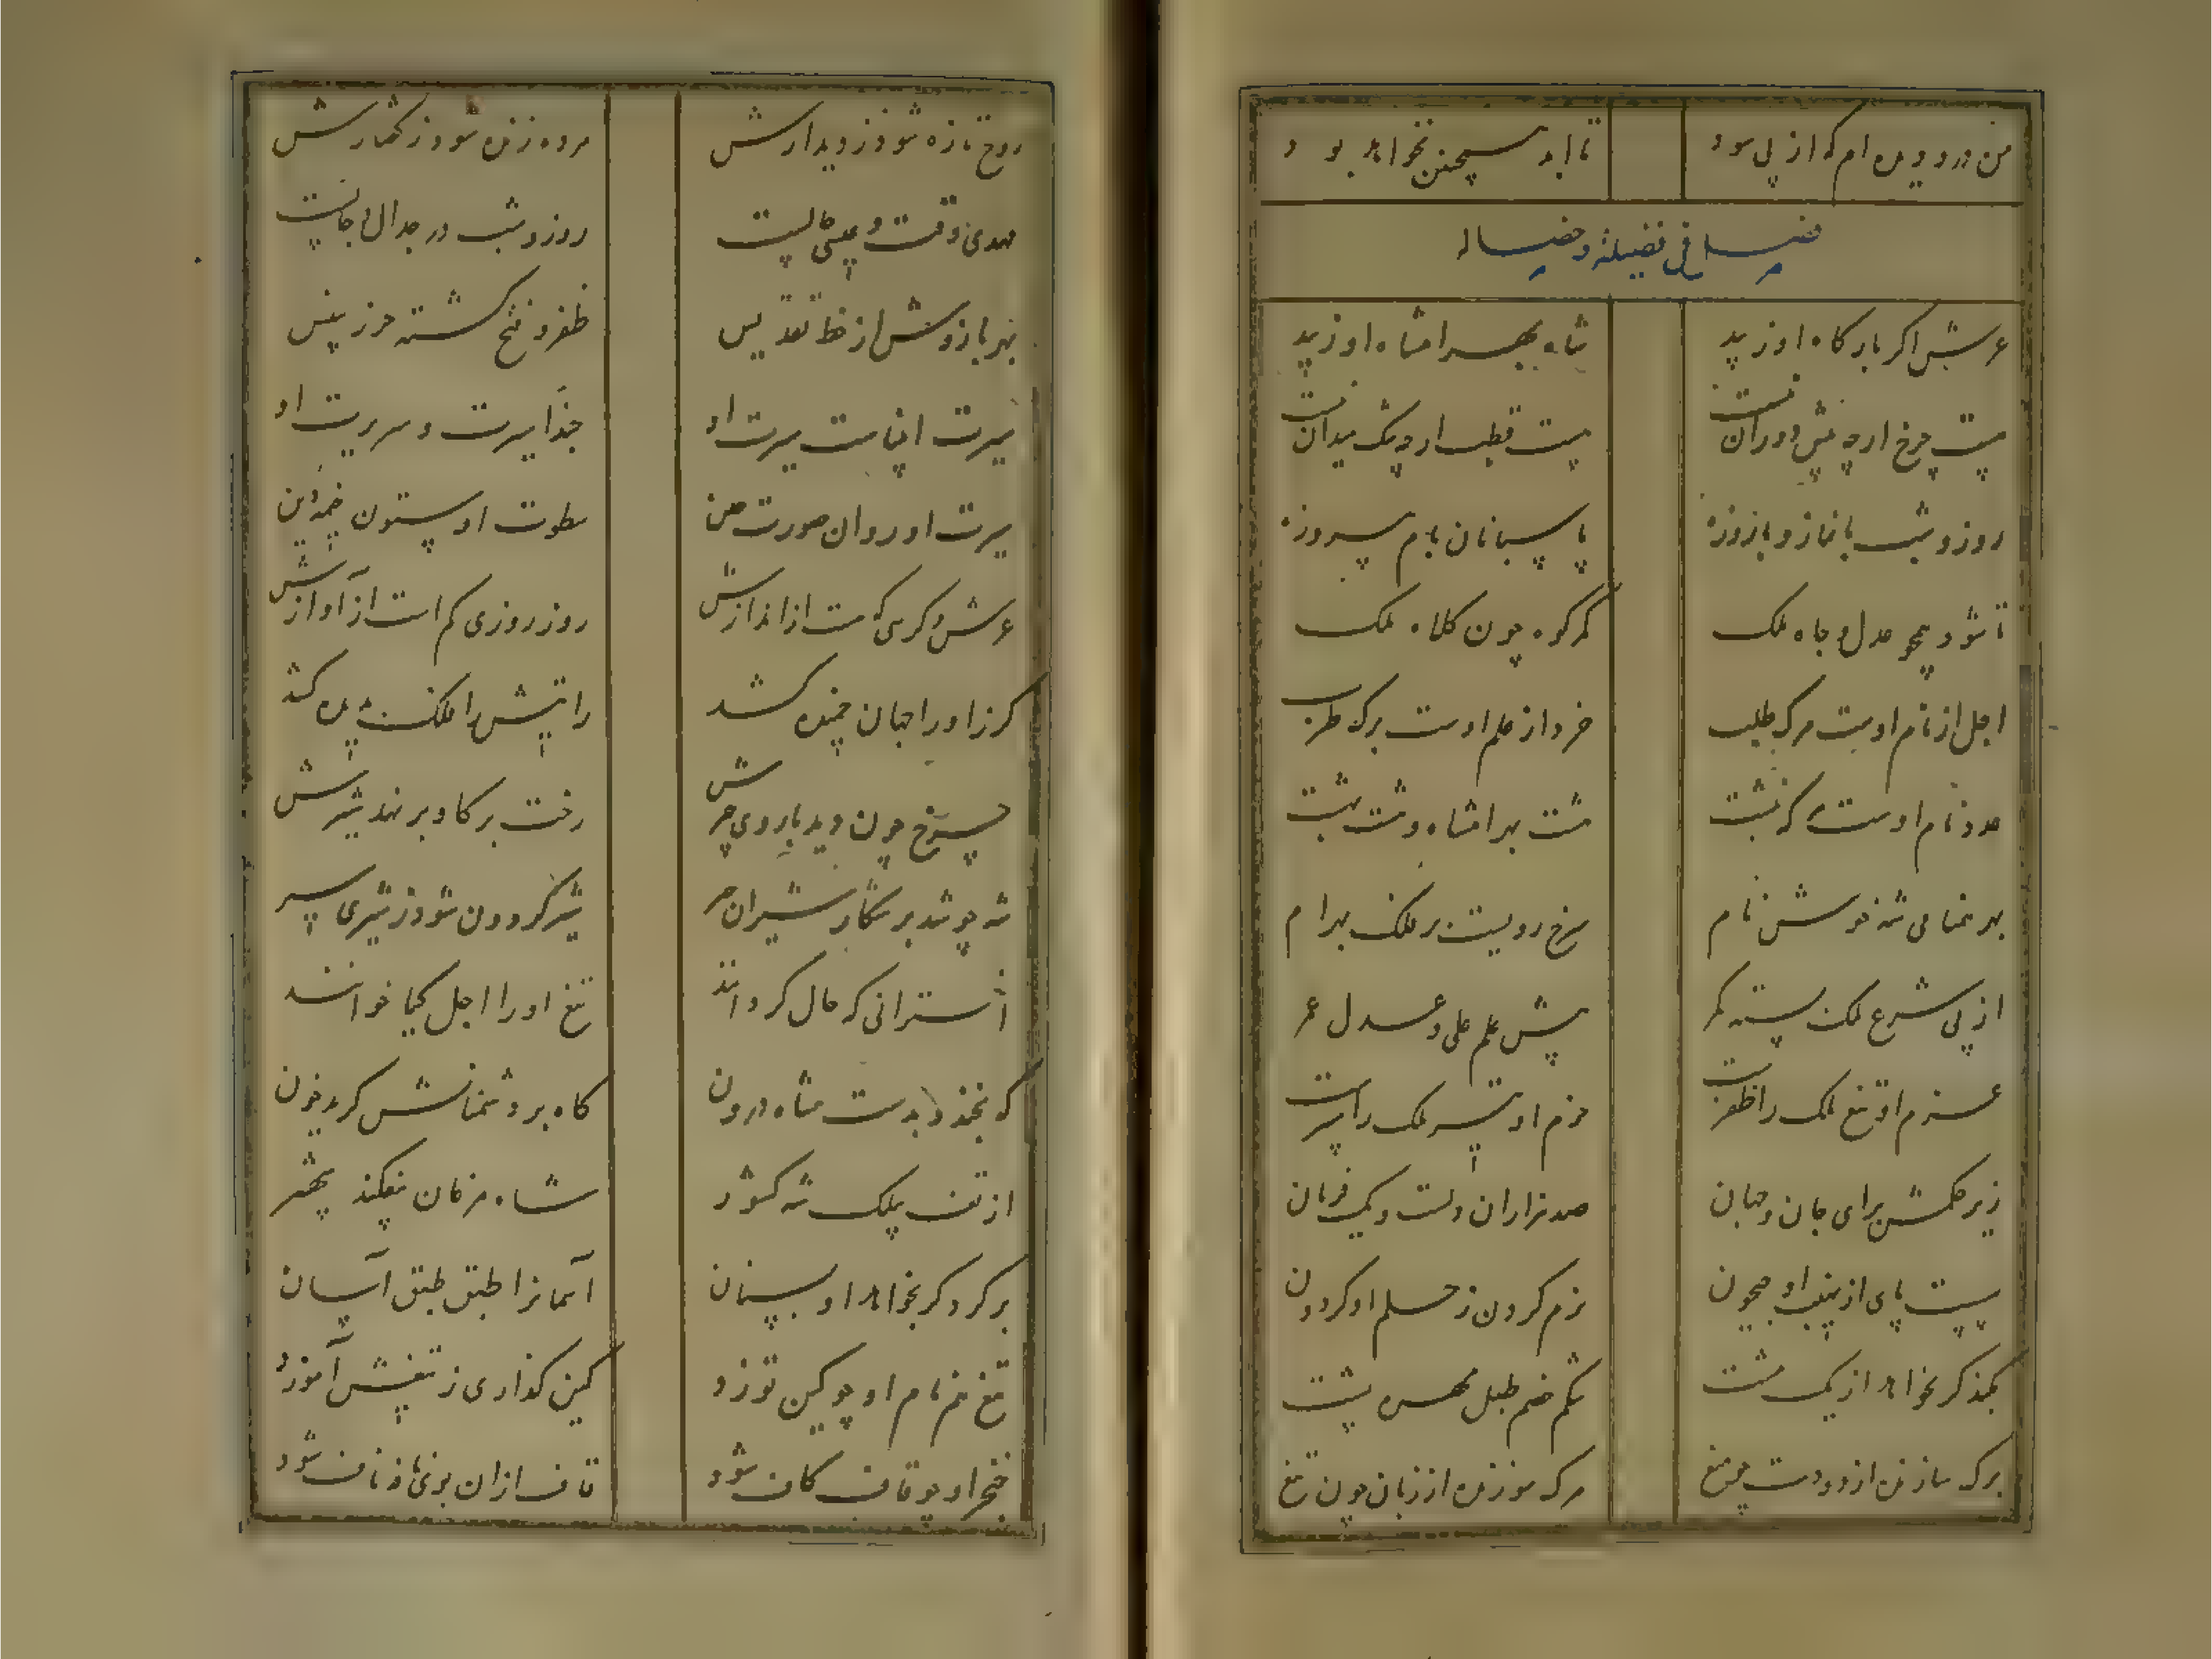 من درود دیده ام که از پی سود
تا ابد همچنین نخواهد بود
فی فضیلة و خصاله
عرش اگر بارگاه او زیبد
شاه بهرامشاه او زیبد
هست چرخ ارچه بیش دورانست
هست قطب ارچه یک میدانست
روز و شب با نماز و با روزه
پاسبانان بام پیروزه
تا شود همچو عدل و جاه ملک
کمر کوه چون کلاه ملک
اجل از نام اوست مرگ طلب
خرد از علم اوست برگ طرب
عدد نام اوست که نبشت
هشت بهرامشاه و هشت بهشت
بهر همنامی شه خوش نام
سرخ رویست بر فلک بهرام
از پی شرع ملک بسته کمر
پیش علم علی و عدل عمر
عزم او تیغ ملک را ظفرست
حزم او تیر ملک را سپرست
زیر حکمش برای جان و جهان
صد هزاران دلست و یک فرمان
پست پای از نهیب او جیحون
نرم گردن ز حلم او گردون
بکند گر بخواهد از یک مشت
شکم خصم طبل مهره پشت
برگ سازنده از دو دست چو میغ
مرگ سوزنده از زبان چون تیغ
روح تازه شود ز دیدارش
مرده زنده شود ز گفتارش
مهدی وقت و عیسی حالست
روز و شب در جدال دجالست
بهر بازوش از خط تقدیس
ظفر و فتح گشته حرز نویس
سیرت انبیاست سیرت او
حبذا سیرت و سریرت او
سیرت او روان صورت چین
سطوت او ستون خیمه دین
عرش و کرسی که هست از اندازش
روز روزی کم است از آوازش
گرز او را جهان خمنده کشد
رایتش را فلک به پرده کشد
چرخ چون دید باروی حرش
رخت بر گاو بر نهد شیرش
شه چو شد بر شکار شیران چر
شیر گردون شود ز شیری سیر
اخترانی که حال گردانند
تیغ او را اجل گیا خوانند
که بخندد بدست شاه درون
گاه بر دشمنانش گرید خون
از تف بیلک شه کشور
شاه مرغان بیفکند شهپر
برکرد گر بخواهد او بسنان
آسمانرا طبق طبق آسان
تیغ هم نام او چو کین توزد
کین گذاری ز تیغش آموزد
خنجر او چو قاف کاف شود
قاف ازان بونی ناف شود